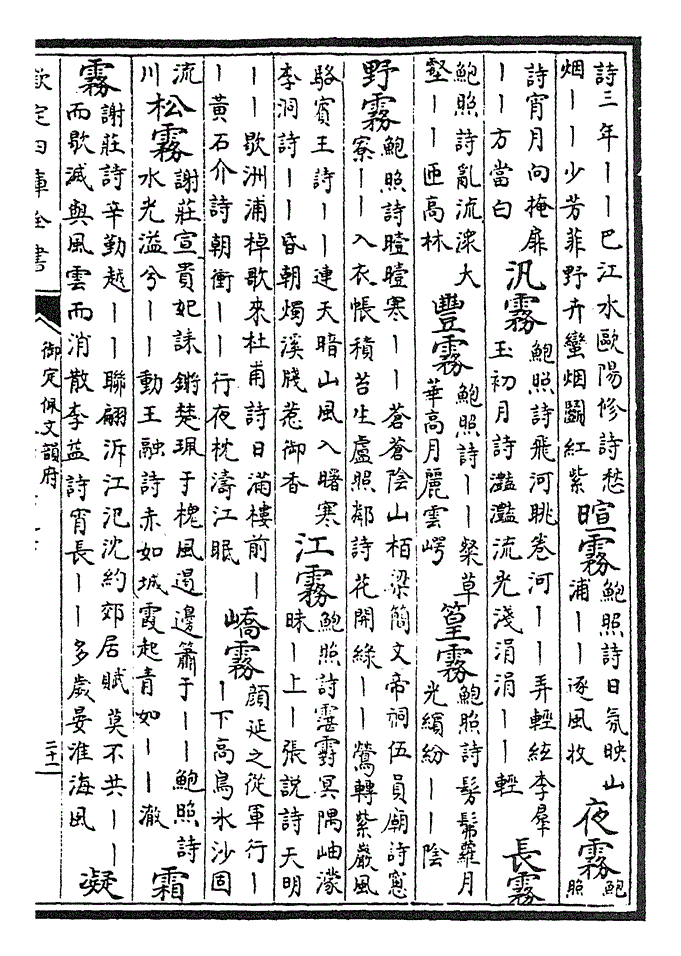 詩三年丨丨巴江水歐陽修詩愁
烟丨丨少芳菲野卉蠻烟鬬紅紫
暄霧
鮑照詩日氛映山
浦丨丨逐風收
夜霧
鮑
照
詩宵月向掩扉
丨丨方當白
汎霧
鮑照詩飛河眺卷河丨丨弄輕紘李羣
玉初月詩灩灩流光淺涓涓丨丨輕
長霧
鮑照詩亂流灇大
壑丨丨匝高林
豐霧
鮑照詩丨丨粲草
華高月麗雲崿
篁霧
鮑照詩髣髴蘿月
光繽紛丨丨陰
野霧
鮑照詩曀曀寒丨丨蒼蒼陰山柏梁簡文帝祠伍員廟詩窓
寮丨丨入衣帳積苔生盧照鄰詩花開綠丨丨鶯轉紫巖風
駱賓王詩丨丨連天暗山風入曙寒
李洞詩丨丨昏朝燭溪牋惹御香
江霧
鮑照詩霮䨴冥隅岫濛
昧丨上丨張説詩天明
丨丨歇洲浦棹歌來杜甫詩日滿樓前丨
丨黄石介詩朝衝丨丨行夜枕濤江眠
嶠霧
顔延之從軍行丨
丨下高鳥氷沙固
流
川
松霧
謝莊宣貴妃誄鏘楚珮于槐風遏邊簫于丨丨鮑照詩
水光溢兮丨丨動王融詩赤如城霞起青如丨丨澈
霜
霧
謝莊詩辛勤越丨丨聯翩泝江汜沈約郊居賦莫不共丨丨
而歇滅與風雲而消散李益詩宵長丨丨多歲晏淮海風
凝
欽定四庫全書
御定佩文韻府